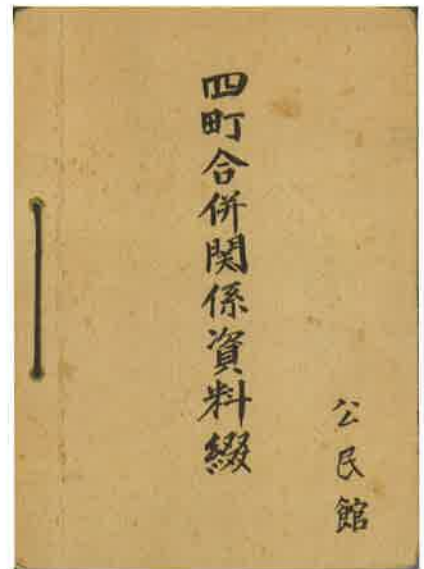 四町合併関係資料綴
公民館